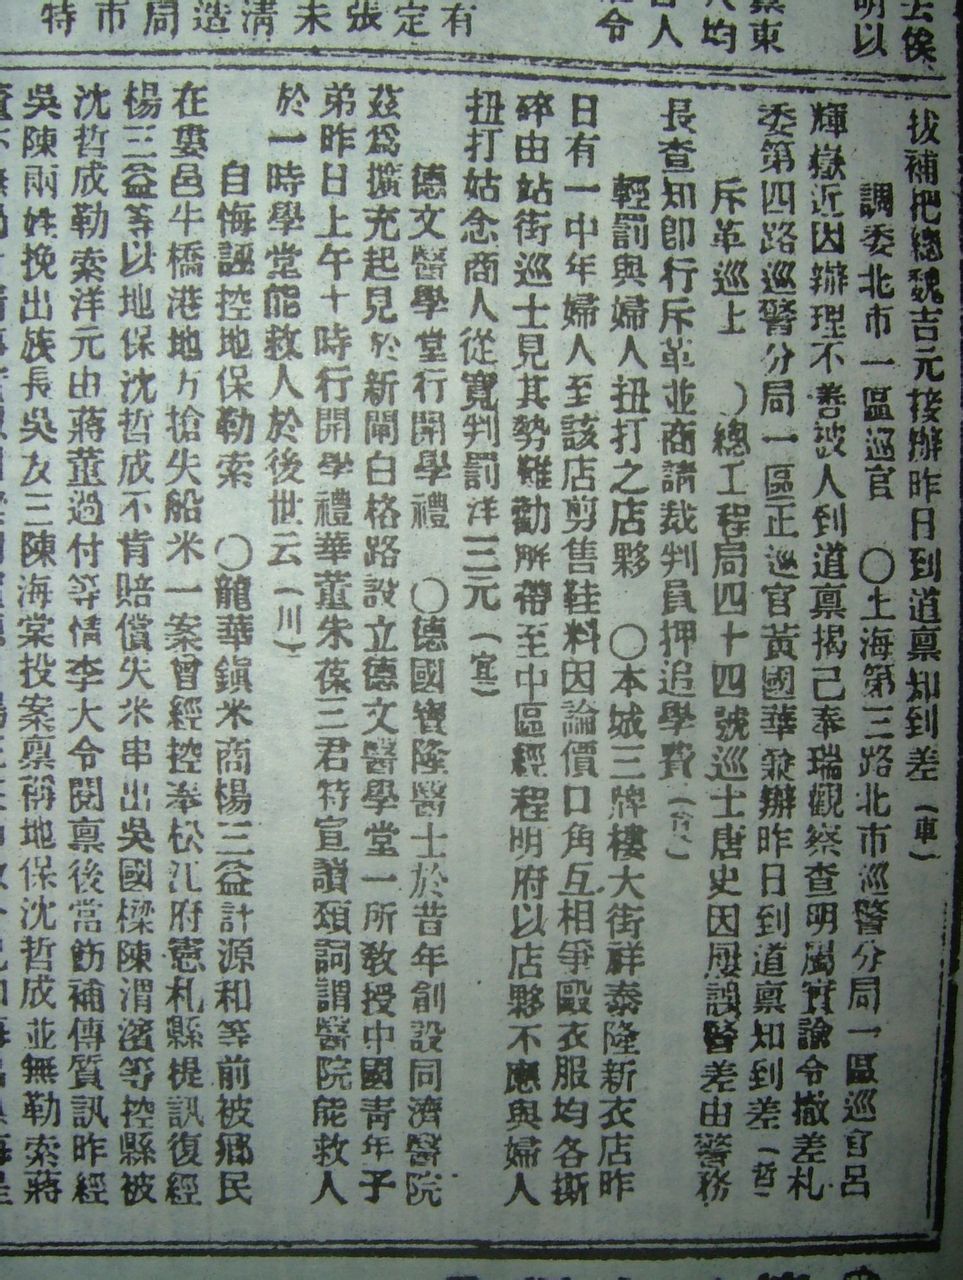 去後
明以
東
均
人
令
有定張未清造局市特
拔補把總魏吉元接辦昨日到道禀知到差（車）
調委北市一區巡官　○上海第三路北市巡警分局一區巡官呂
輝嶽近因辦理不善被人到道禀揭己奉瑞觀察查明屬實諭令撤差札
委第四路巡警分局一區正巡官黃國華兼辦昨日到道禀知到差（哲）
斥革巡士　○總工程局四十四號巡士唐史因屢誤警差由警務
長查知即行斥革並商請裁判員押追學費
輕罰與婦人扭打之店夥　○本城三牌樓大街祥泰隆新衣店昨
日有一中年婦人至該店剪售鞋料因論價口角互相爭毆衣服均各撕
碎由站街巡士見其勢難勸解帶至中區經程明府以店夥不應與婦人
扭打姑念商人從寬判罰洋三元（宜）
德文醫學堂行開學禮　○德國寶隆醫士於昔年創設同濟醫院
茲爲擴充起見於新閘白格路設立德文醫學堂一所敎授中國青年子
弟昨日上午十時行開學禮華董朱葆三君特宣讀頌詞謂醫院能救人
於一時學堂能救人於後世云（川）
自悔誣控地保勒索　○龍華鎭米商楊三益計源和等前被鄉民
在婁邑牛橋港地方搶失船米一案曾經控奉松江府憲札縣提訊復經
楊三益等以地保沈哲成不肯賠償失米串出吳國樑陳渭濱等控縣被
沈哲成勒索洋元由蔣董過付等情李大令閱禀後當飭補傳質訊昨經
吳陳兩姓挽出族長吳友三陳海棠投案禀稱地保沈哲成並無勒索蔣